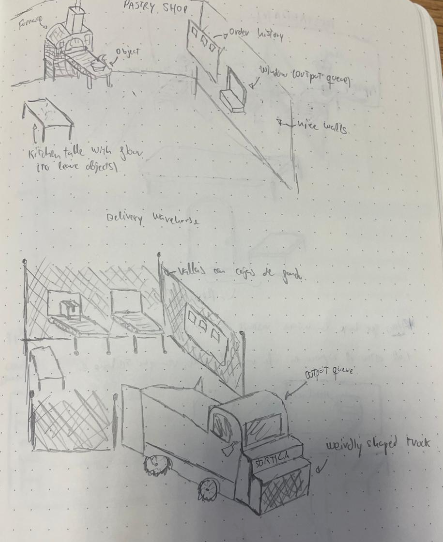 PASTRY SHOP
Furnace
Object
Order history
Window (output queue)
nice walls
Kitchen table with flour
(to leave objects)
Delivery Warehouse
vallas con cajas de
output queue
weirdly shaped truck